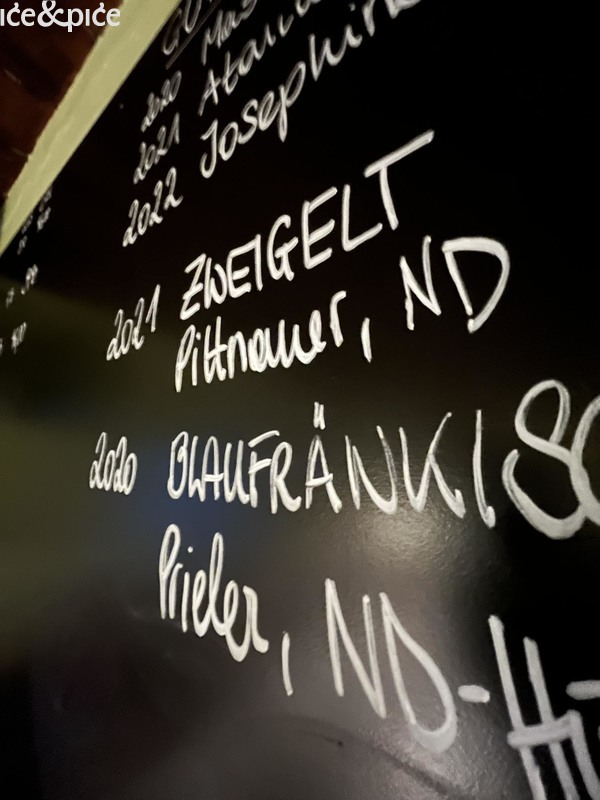 ice&pice
2020
2021
2022 Josephin
2021 ZWEIGELT
Pittnauer, ND
2020 BLAUFRÄNKISC
Prieler, ND-H